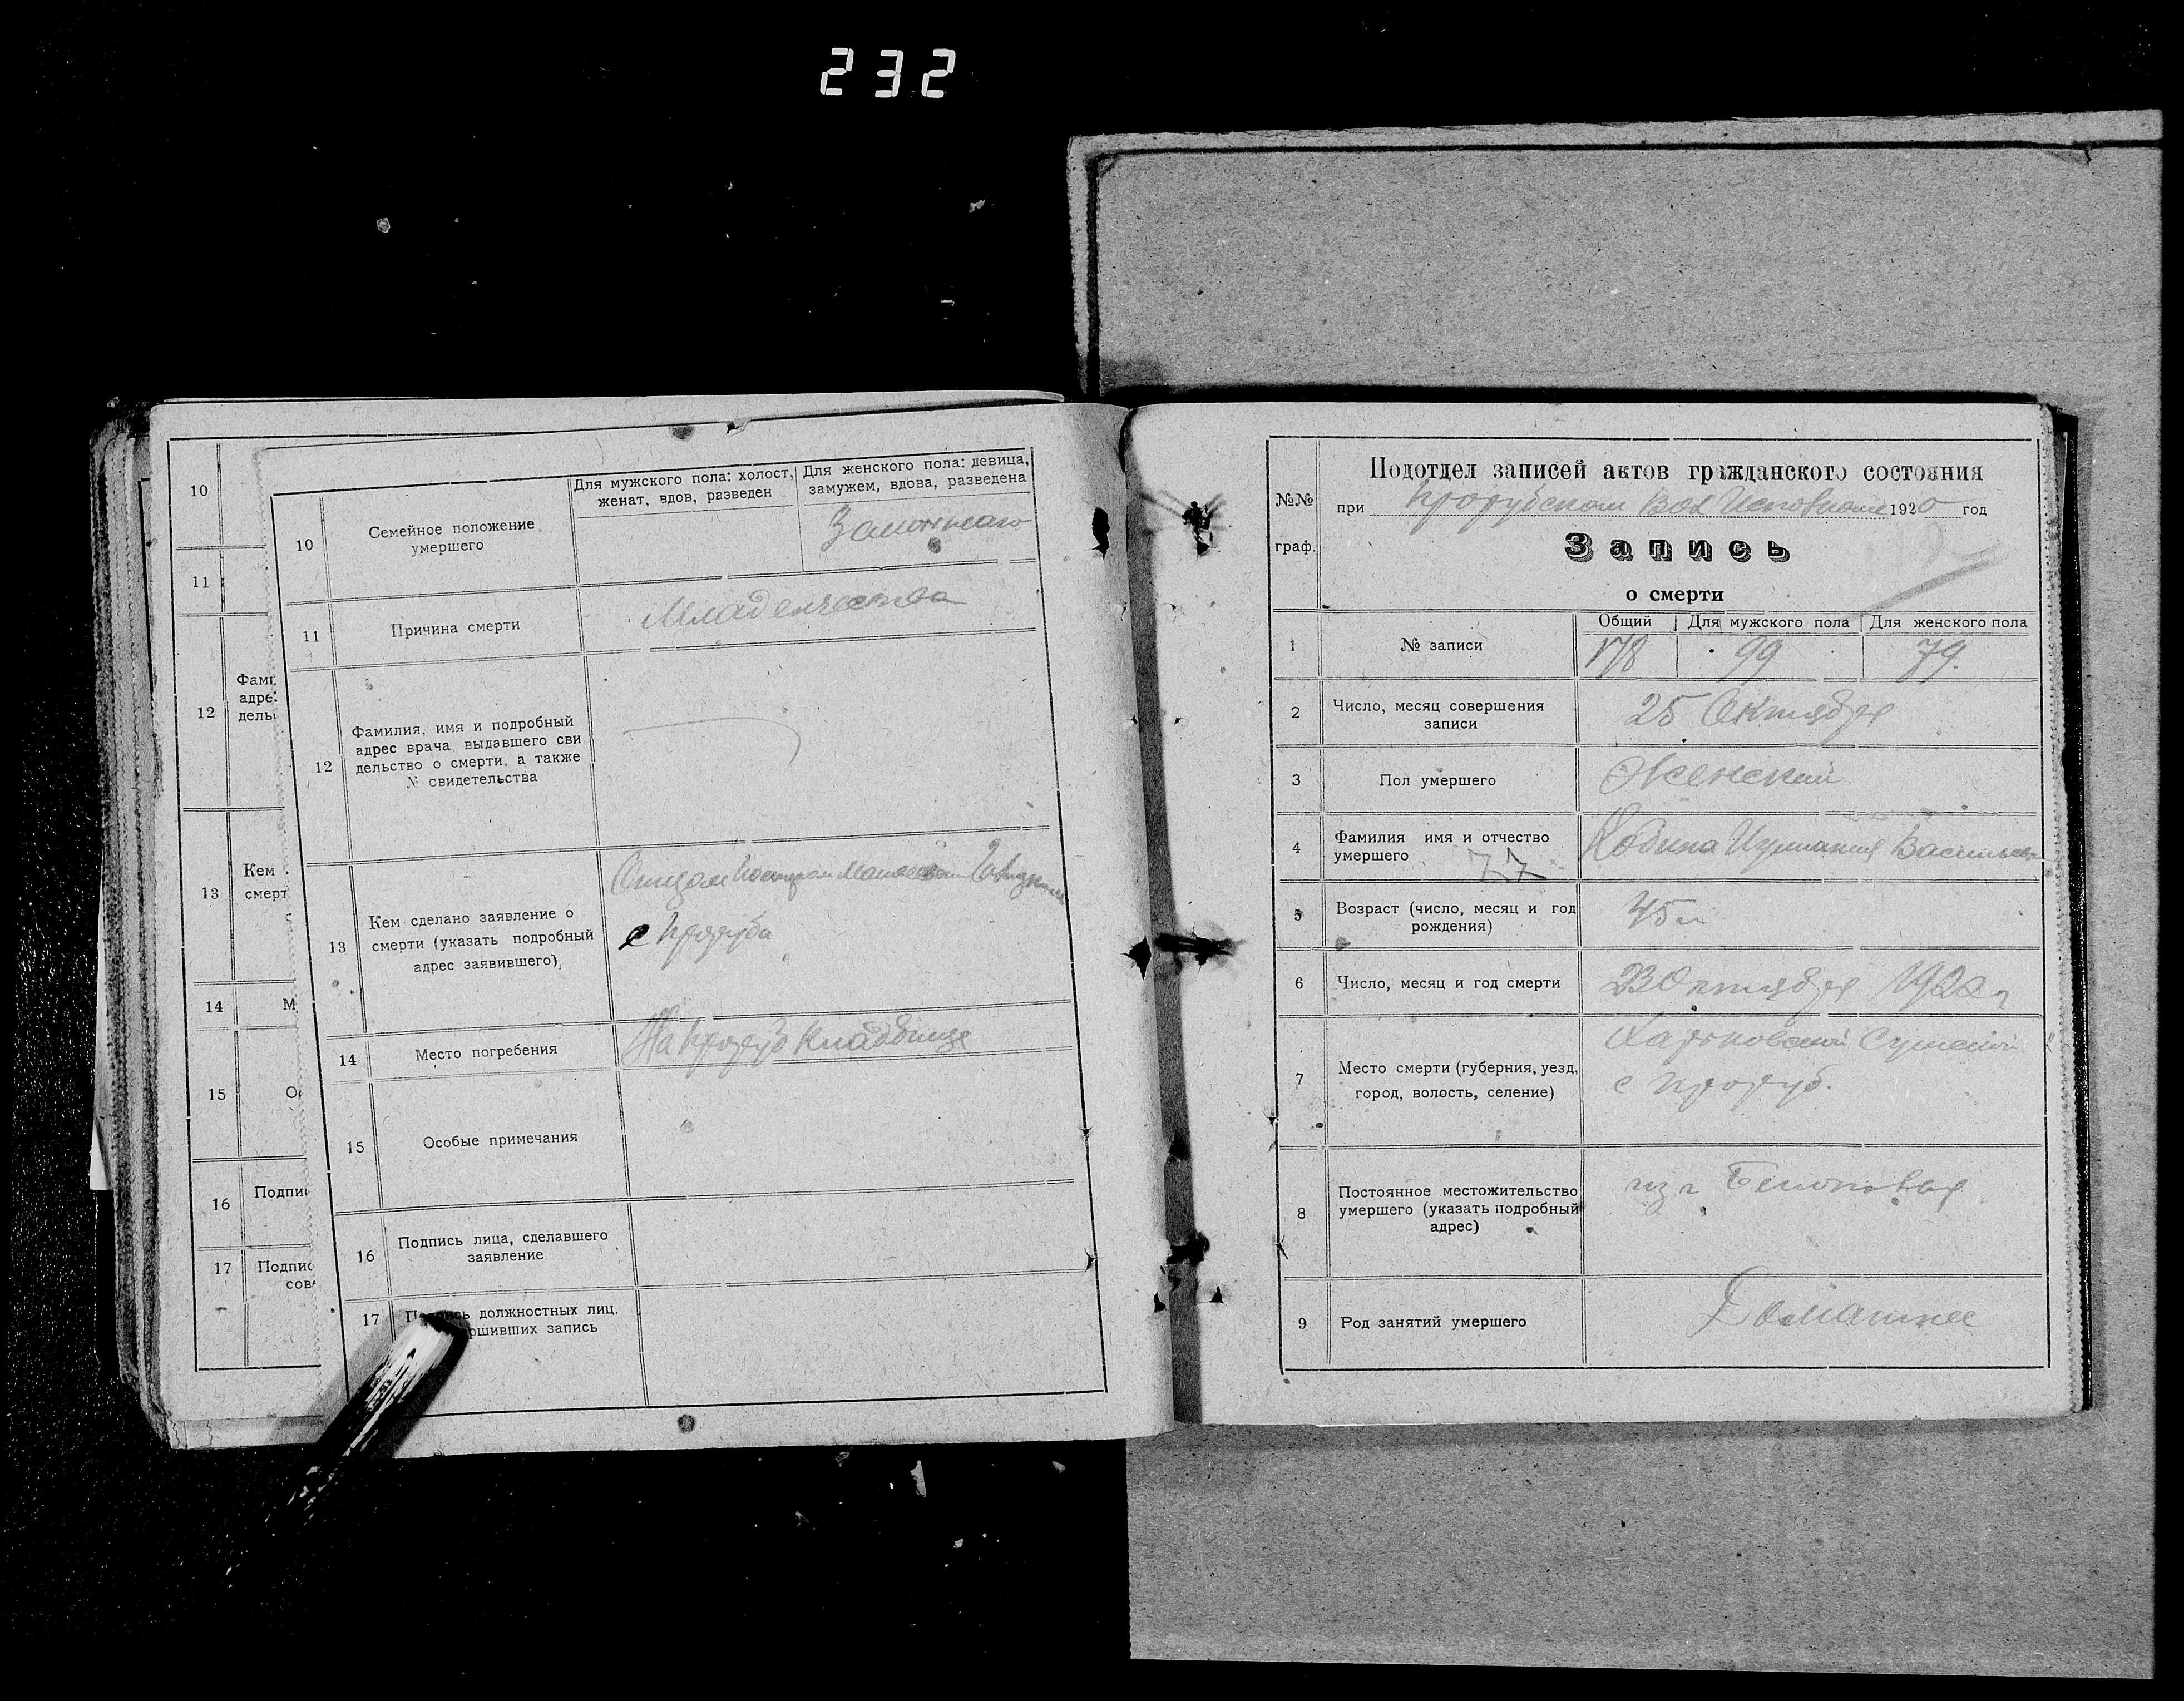 232
10
11
12
Фами
адре
дель
13
Кем
смерт
14
М
15
О
16
Подпи
17
Подпис
сов
10
Семейное положение
умершего
Для мужского пола: холост,
женат, вдов, разведен
Для женского пола: девица,
замужем, вдова, разведена
11
Причина смерти
Младенчества
12
Фамилия, имя и подробный
адрес врача, выдавшего сви
дельство о смерти, а также
№ свидетельства
13
Кем сделано заявление о
смерти (указать подробный
адрес заявившего)
Отцом
с Проруба
14
Место погребения
На Проруб кладбище
15
Особые примечания
16
Подпись лица, сделавшего
заявление
17
Подпись должностных лиц,
ршивших запись
№№
граф.
Подотдел записей актов гражданского состояния
при Прорубском Вол Исполкоме 1920 год
Запись
о смерти
1
№ записи
Общий
Для мужского пола
Для женского пола
178
99
79.
2
Число, месяц совершения
записи
25 Октября
3
Пол умершего
Женский
4
Фамилия имя и отчество
умершего
77
Васильевн
5
Возраст (число, месяц и год
рождения)
45
6
Число, месяц и год смерти
23 Октября 1920 г
7
Место смерти (губерния, уезд,
город, волость, селение)
Харьковской Сумской
с Проруб.
8
Постоянное местожительство
умершего (указать подробный
адрес)
из г
9
Род занятий умершего
Домашнее